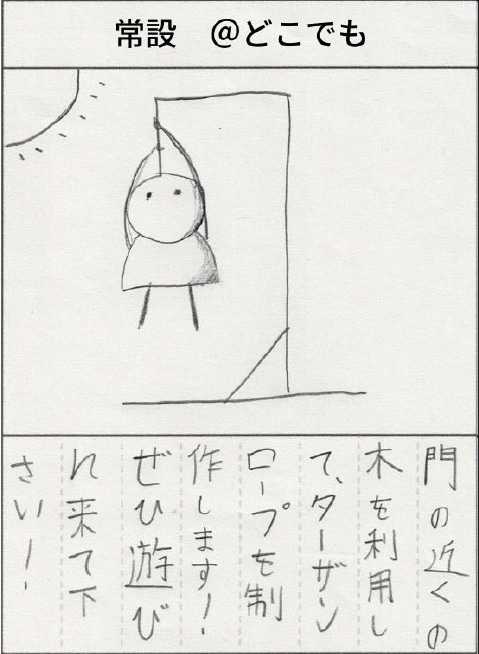 常設　＠どこでも
門の近くの
木を利用し
て、ターザン
ロープを制
作します！
ぜひ遊び
に来て下
さい！